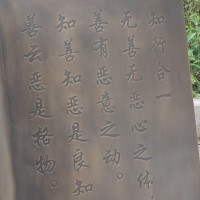 知行合一
无善无恶心之体
善有恶意之动。
知善知恶是良知
善去恶是格物。